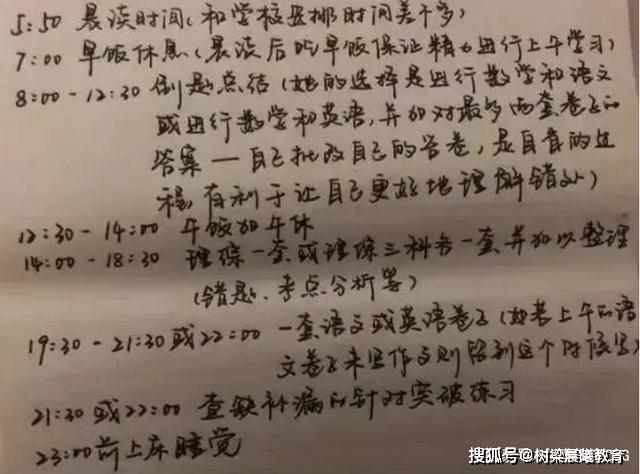 5:50 晨读时间(和学校安排时间差不多)
7:00 早饭休息(晨读后吃早饭保证精力进行上午学习)
8:00-12:30 刷题总结(她的选择是进行数学和语文
或进行数学和英语,并加对最多两套卷子的
答案—自己批改自己的答卷,是自省的过
程,有利于让自己更好地理解错处)
12:30-14:00 午饭加午休
14:00-18:30 理综一套或理综三科各一套并加以整理
(错题、考点分析等)
19:30-21:30或22:00 一套语文或英语卷子(如若上午的语
文卷子未写作文则留到这个时候写)
21:30或22:00 查缺补漏的针对突破练习
23:00前上床睡觉
搜狐号@树梁晨曦教育